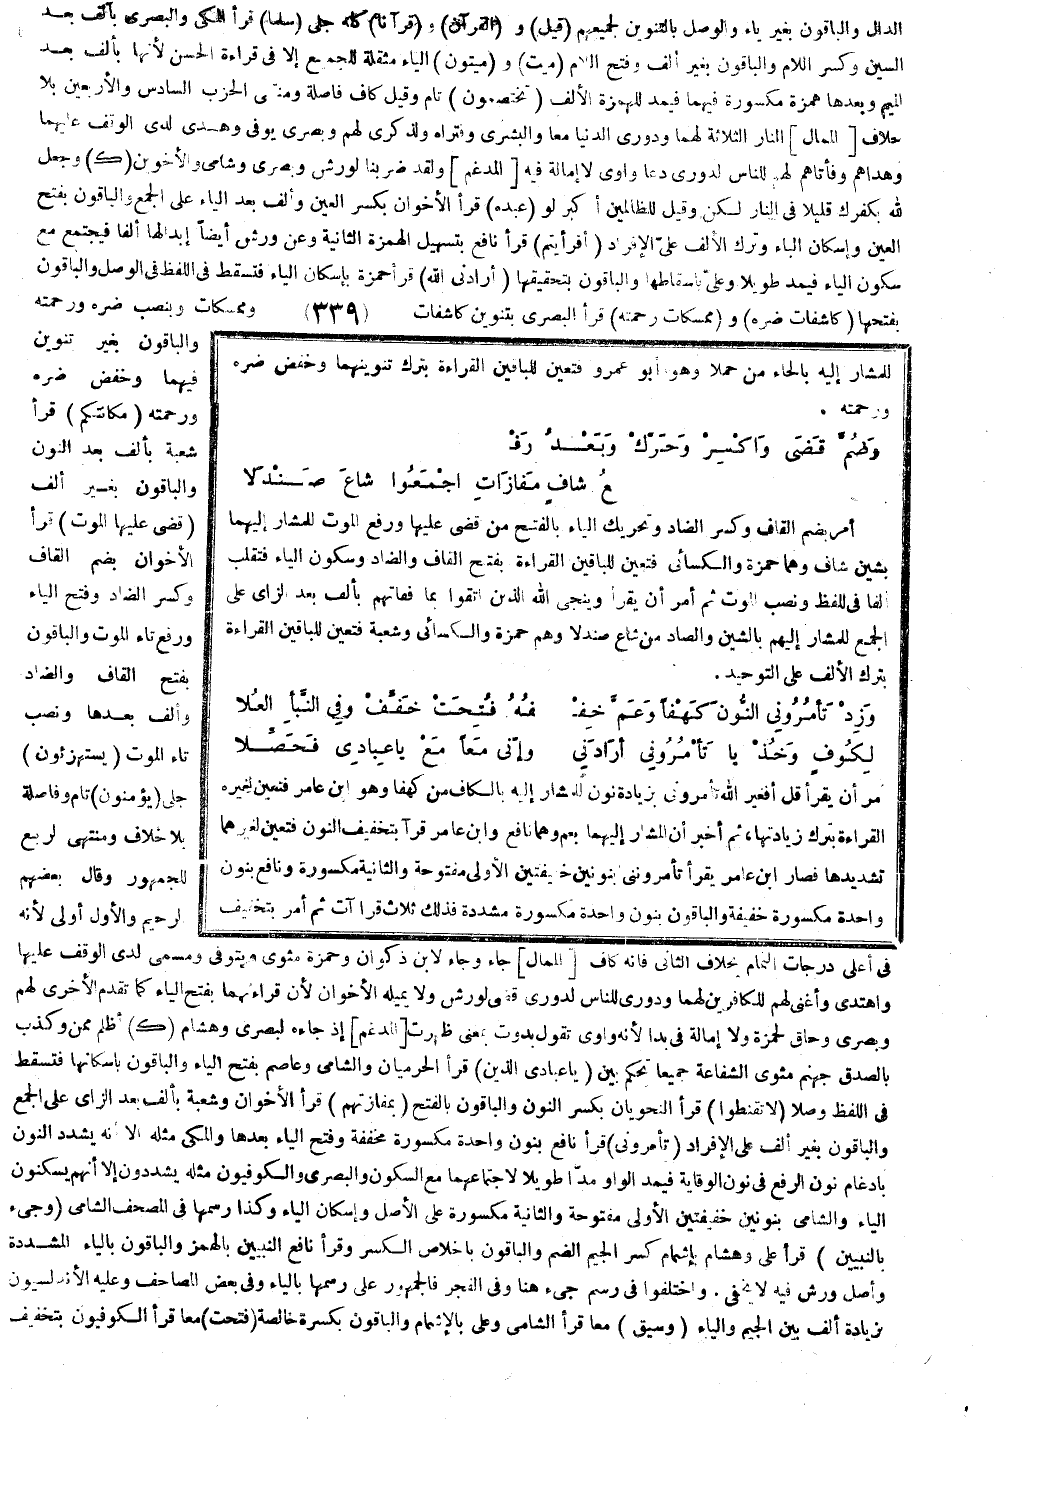 الدال والباقون بغير ياء والوصل بالتنوين لجميعهم (قيل) و (القرآن) و (قرآنا) كله جلى (سلما) قرأ المكى والبصرى بألف بعد
السين وكسر اللام والباقون بغير ألف وفتح اللام (ميت) و (ميتون) الياء مثقلة للجميع إلا فى قراءة الحسن لأنها بألف بعد
الميم وبعدها همزة مكسورة فيهما فيمد للهمزة الألف (تختصمون) تام وقيل كاف فاصلة ومنتهى الحزب السادس والأربعين بلا
خلاف [الممال] النار الثلاثة لهما ودورى الدنيا معا والبشرى وفتراه ولذكرى لهم وبصرى يوفى وهدى لدى الوقف عليهما
وهداهم وفأتاهم لهم للناس لدورى دعا واوى لا إمالة فيه [المدغم] ولقد ضربنا لورش وبصرى وشامى والأخوين (ك) وجعل
لله بكفرك قليلا فى النار لكن وقيل للظالمين أكبر لو (عبده) قرأ الأخوان بكسر العين وألف بعد الياء على الجمع والباقون بفتح
العين وإسكان الباء وترك الألف على الإفراد (أفرأيتم) قرأ نافع بتسهيل الهمزة الثانية وعن ورش أيضاً إبدالها ألفا فيجتمع مع
سكون الياء فيمد طويلا وعلىّ بإسقاطها والباقون بتحقيقها (أرادنى الله) قرأ حمزة بإسكان الياء فتسقط فى اللفظ فى الوصل والباقون
بفتحها (كاشفات ضره) و (ممسكات رحمته) قرأ البصرى بتنوين كاشفات (٣٣٩) وممسكات وبنصب ضره ورحمته
والباقون بغير تنوين
فيهما وخفض ضره
ورحمته (مكانتكم) قرأ
شعبة بألف بعد النون
والباقون بغير ألف
(قضى عليها الموت) قرأ
الأخوان بضم القاف
وكسر الضاد وفتح الياء
ورفع تاء الموت والباقون
بفتح القاف والضاد
وألف بعدها ونصب
تاء الموت (يستهزئون)
جلى (يؤمنون) تام وفاصلة
بلا خلاف ومنتهى لربع
للجمهور وقال بعضهم
الرحيم والأول أولى لأنه
للمشار إليه بالحاء من حملا وهو أبو عمرو فتعين للباقين القراءة بترك تنوينهما وخفض ضره
ورحمته .
وَضُمَّ قَضَى وَاكْسِرْ وَحَرِّكْ وَبَعْدُ رَفْـ
عُ شَافٍ مَفَازَاتٍ اجْمَعُوا شَاعَ صَنْدَلَا
أمر بضم القاف وكسر الضاد وتحريك الياء بالفتح من قضى عليها ورفع الموت للمشار إليهما
بشين شاف وهما حمزة والكسائى فتعين للباقين القراءة بفتح القاف والضاد وسكون الياء فتقلب
ألفا فى اللفظ ونصب الموت ثم أمر أن يقرأ وينجى الله الذين اتقوا بما فماتهم بألف بعد الزاى على
الجمع للمشار إليهم بالشين والصاد من شاع صندلا وهم حمزة والكسائى وشعبة فتعين للباقين القراءة
بترك الألف على التوحيد .
وَزِدْ تَأْمُرُونِي النُّونَ كَهْفًا وَعَمَّ خِفْـ فُهُ فُتِحَتْ خَفِّفْ وَفِي النَّبَأِ العُلَا
لِكُوفٍ وَخُذْ يَا تَأْمُرُونِي أَرَادَنِي وَإِنِّي مَعًا مَعْ يَا عِبَادِي فَحَصِّلَا
أمر أن يقرأ قل أفغير الله تأمرونى بزيادة نون للمشار إليه بالكاف من كهفا وهو ابن عامر فتعين لغيره
القراءة بترك زيادتها، ثم أخبر أن المشار إليهما بعم وهما نافع وابن عامر قرآ بتخفيف النون فتعين لغيرهما
تشديدها فصار ابن عامر يقرأ تأمروننى بنونين خفيفتين الأولى مفتوحة والثانية مكسورة ونافع بنون
واحدة مكسورة خفيفة والباقون بنون واحدة مكسورة مشددة فذلك ثلاث قراآت ثم أمر بتخفيف
فى أعلى درجات التمام بخلاف الثانى فانه كاف [الممال] جاء وجاء لابن ذكوان وحمزة مثوى ويتوفى ومسمى لدى الوقف عليها
واهتدى وأغنى لهم للكافرين لهما ودورى للناس لدورى قضى لورش ولا يميله الأخوان لأن قراءتهما بفتح الياء كما تقدم الأخرى لهم
وبصرى وحاق لحمزة ولا إمالة فى بدا لأنه واوى تقول بدوت بمعنى ظهرت [المدغم] إذ جاءه لبصرى وهشام (ك) أظلم ممن وكذب
بالصدق جهنم مثوى الشفاعة جميعا تحكم بين (ياعبادى الذين) قرأ الحرميان والشامى وعاصم بفتح الياء والباقون باسكانها فتسقط
فى اللفظ وصلا (لاتقنطوا) قرأ النحويان بكسر النون والباقون بالفتح (بمفازتهم) قرأ الأخوان وشعبة بألف بعد الزاى على الجمع
والباقون بغير ألف على الإفراد (تأمرونى) قرأ نافع بنون واحدة مكسورة مخففة وفتح الياء بعدها والمكى مثله الا أنه يشدد النون
بادغام نون الرفع فى نون الوقاية فيمد الواو مدّا طويلا لاجتماعهما مع السكون والبصرى والكوفيون مثله يشددون إلا أنهم يسكنون
الياء والشامى بنونين خفيفتين الأولى مفتوحة والثانية مكسورة على الأصل وإسكان الياء وكذا رسمها فى المصحف الشامى (وجىء
بالنبيين) قرأ على وهشام بإشمام كسر الجيم الضم والباقون باخلاص الكسر وقرأ نافع النبيين بالهمز والباقون بالياء المشددة
وأصل ورش فيه لا يخفى . واختلفوا فى رسم جىء هنا وفى الفجر فالجمهور على رسمها بالياء وفى بعض المصاحف وعليه الأندلسيون
بزيادة ألف بين الجيم والياء (وسيق) معا قرأ الشامى وعلى بالإشمام والباقون بكسرة خالصة (فتحت) معا قرأ الكوفيون بتخفيف